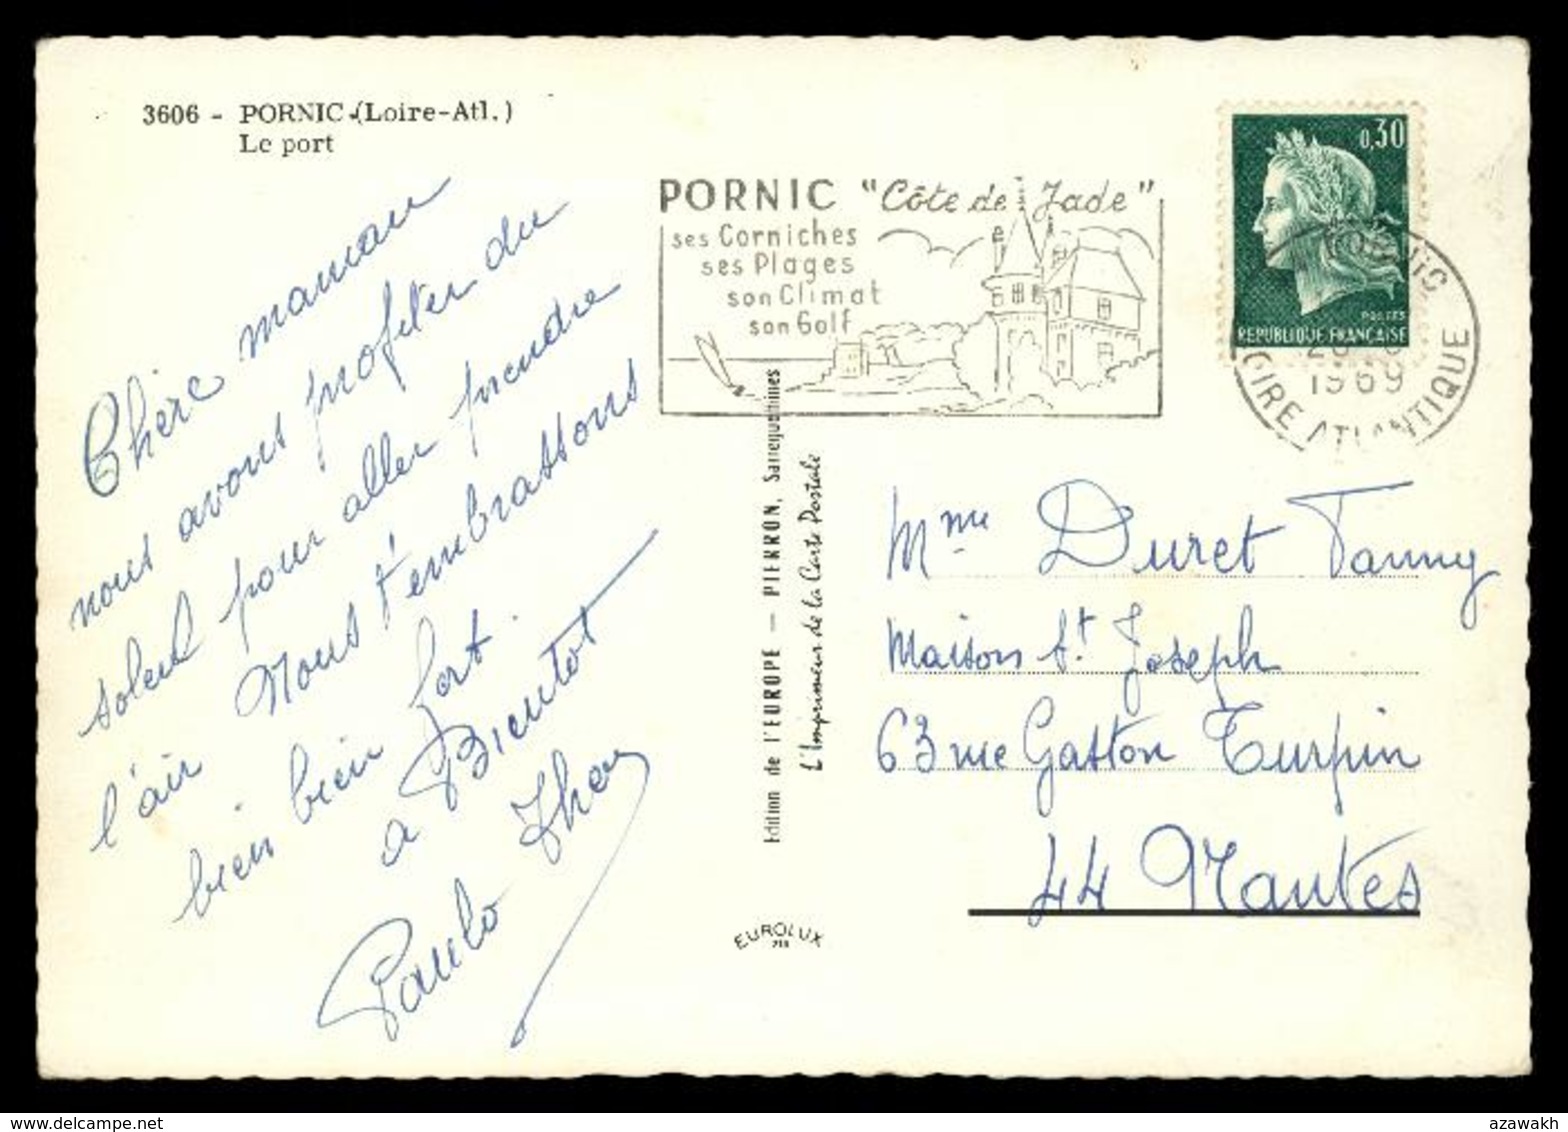 3606 - PORNIC (Loire-Atl.)
Le port
Chère maman
nous avons profiter du
soleil pour aller prendre
l'air Nous t'embrassons
bien bien fort.
a Bientot
Paulo
PORNIC "Côte de Jade"
ses Corniches
ses Plages
son Climat
son Golf
0,30
POSTES
REPUBLIQUE FRANÇAISE
PORNIC
1969
LOIRE ATLANTIQUE
Edition de l'EUROPE — PIERRON, Sarreguemines
L'Imprimeur de la Carte Postale
EUROLUX
Mme Duret Fanny
Maison St. Joseph
63 rue Gaston Turpin
44 Nantes
azawakh